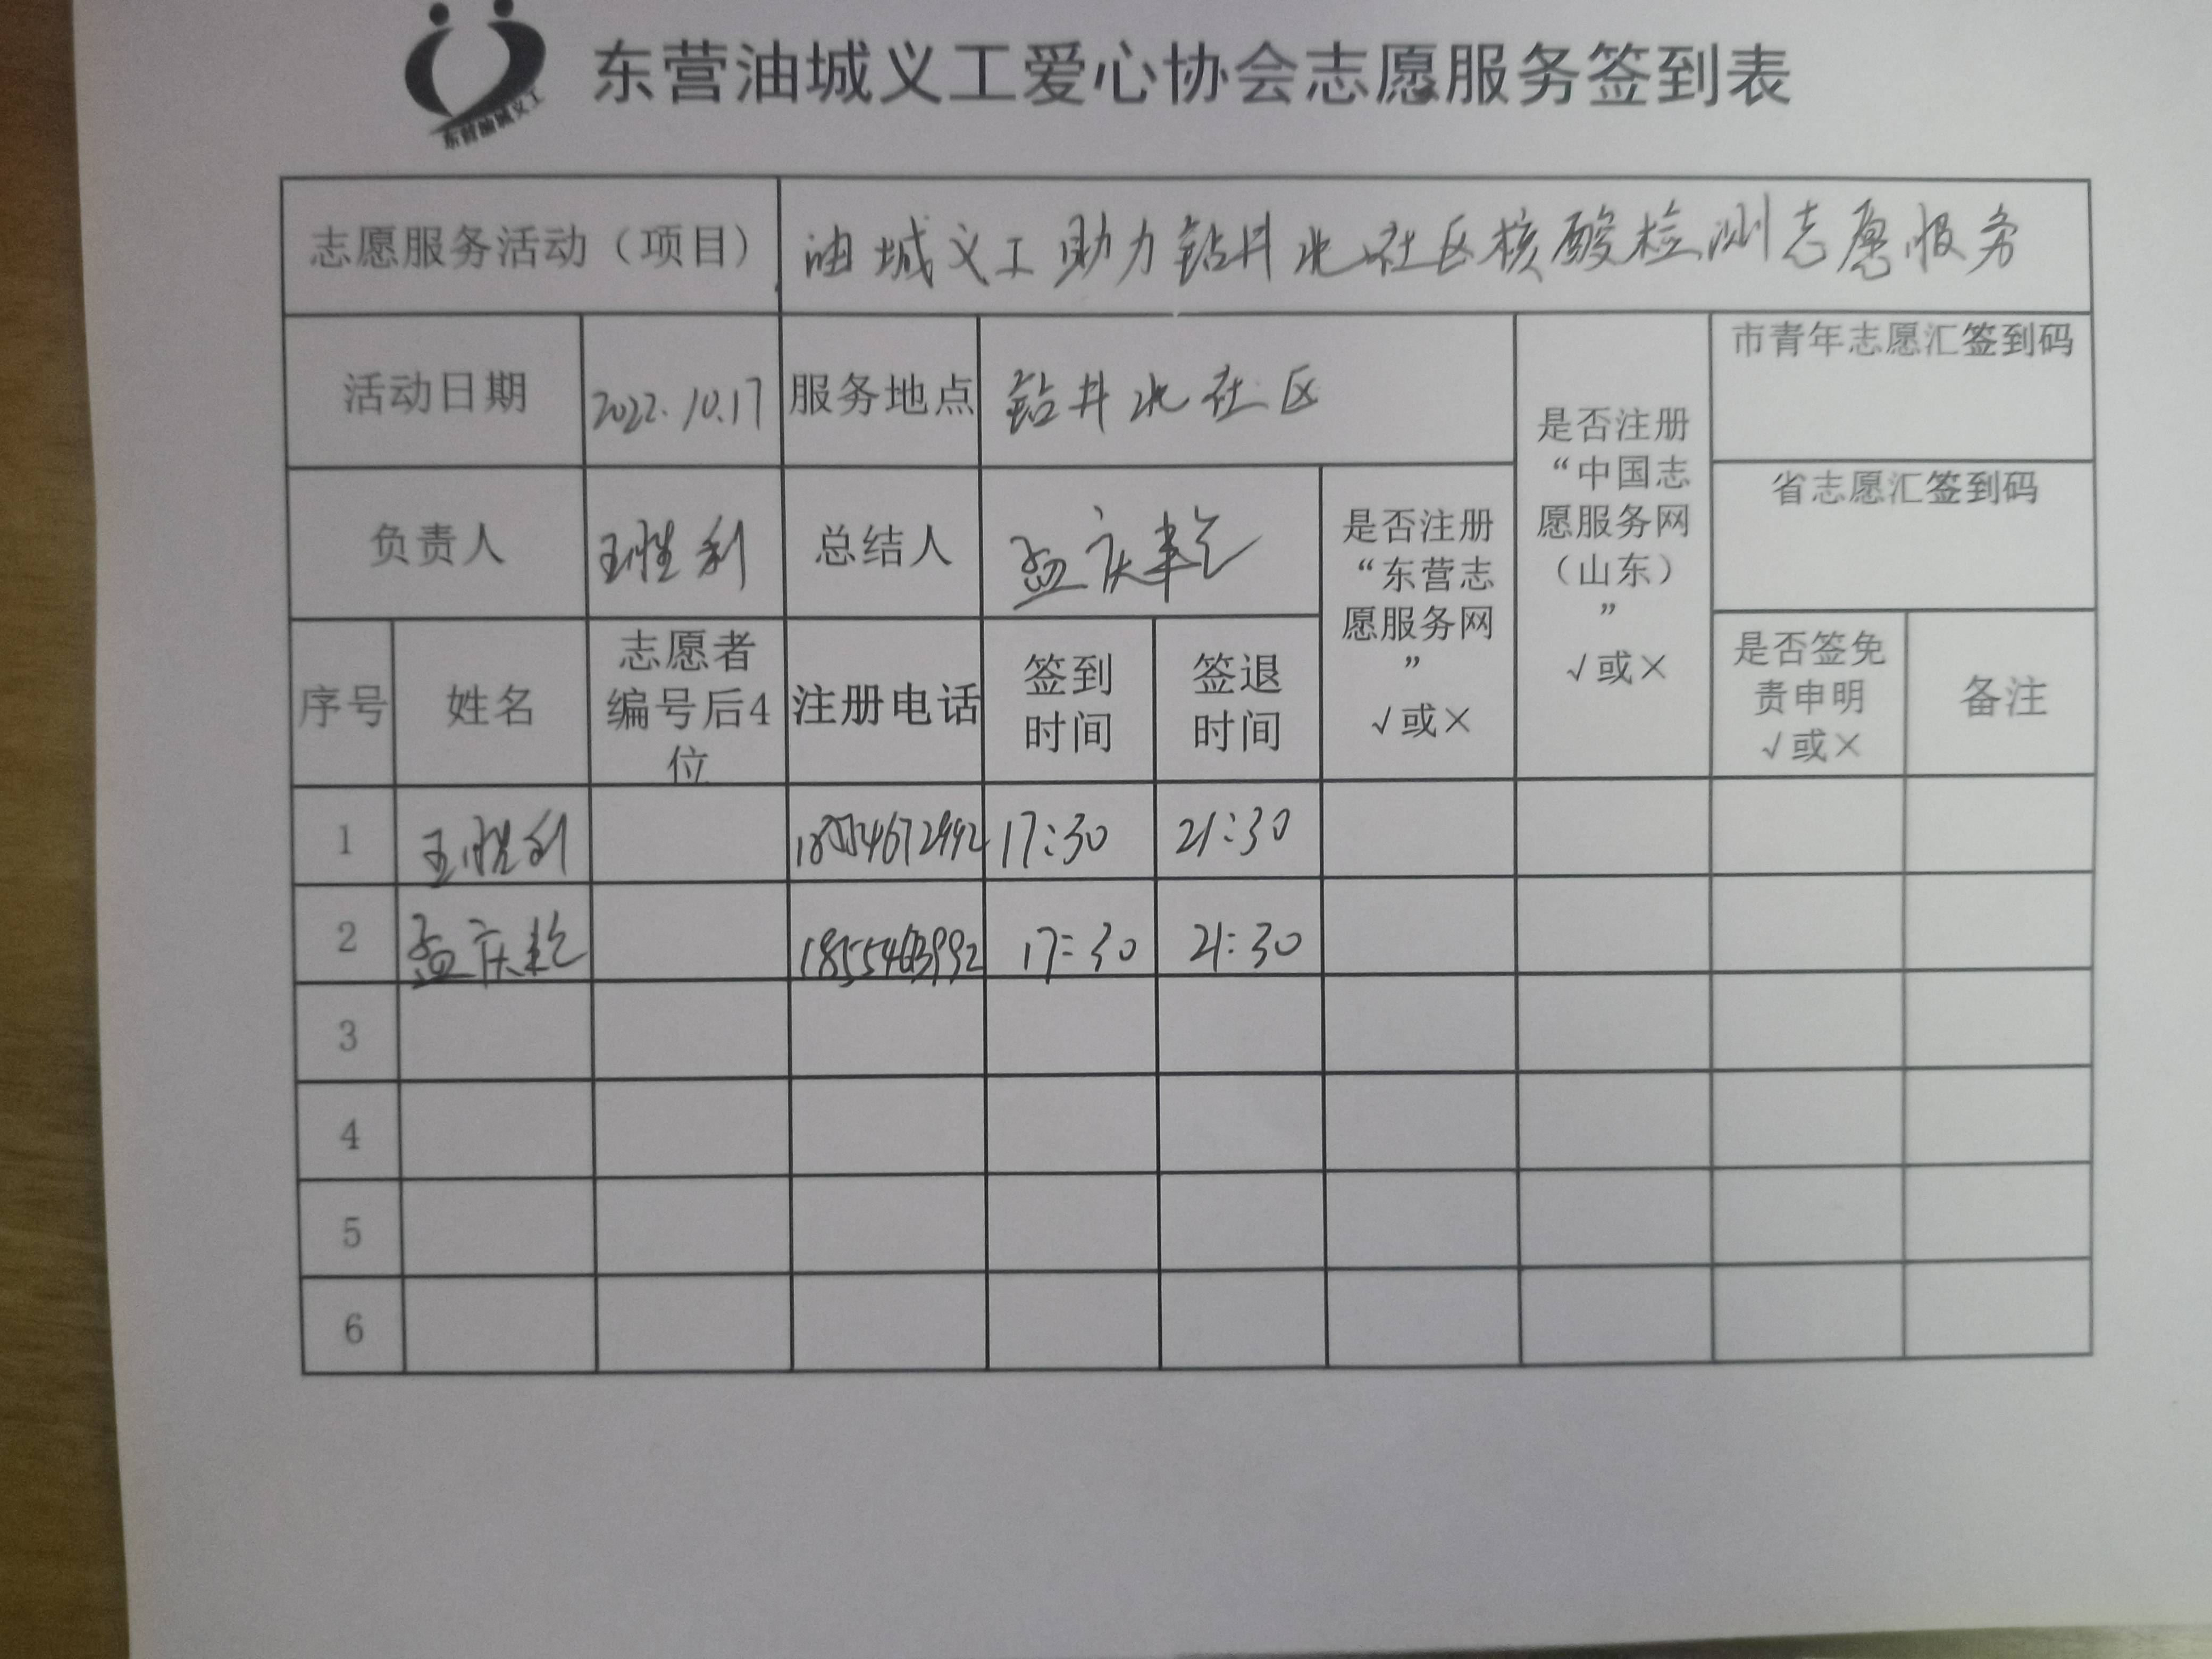 东营油城义工
东营油城义工爱心协会志愿服务签到表
志愿服务活动（项目） 油城义工助力钻井北社区核酸检测志愿服务
活动日期 2022.10.17 服务地点 钻井北社区
负责人 王胜利 总结人 孟庆
是否注册
“东营志
愿服务网
”
√或×
是否注册
“中国志
愿服务网
（山东）
”
√或×
市青年志愿汇签到码
省志愿汇签到码
序号
姓名
志愿者
编号后4
位
注册电话
签到
时间
签退
时间
是否签免
责申明
√或×
备注
1 王胜利 17:30 21:30
2 孟庆 17:30 21:30
3
4
5
6